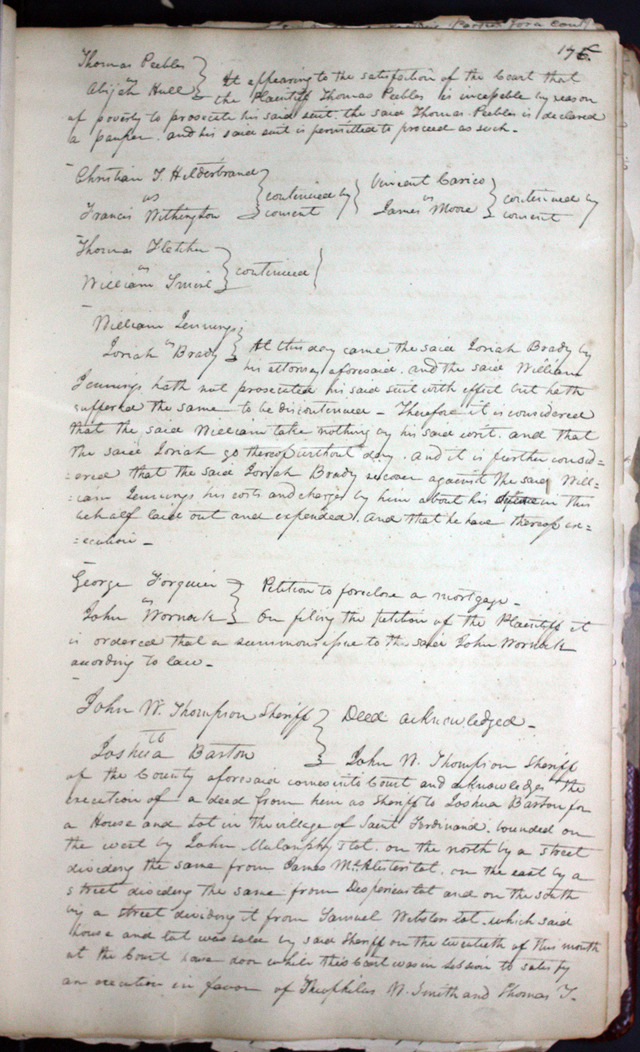 175
Thomas Peebles
vs
Abijah Hull
It appearing to the satisfaction of the Court that
the Plaintiff Thomas Peebles is incapable by reason
of poverty to prosecute his said suit. the said Thomas Peebles is declared
a pauper. and his said suit is permitted to proceed as such.
Christian T. Hilderbrand
vs
Francis Withington
continued by
consent
Vincent Carico
James vs Moore
continued by
consent
Thomas Fletcher
vs
William
continued
William Jennings
vs
Josiah Brady
At this day came the said Josiah Brady by
his attorney aforesaid. and the said William
Jennings hath not prosecuted his said suit with effect but hath
suffered the same to be discontinued - Therefore it is considered
that the said William take nothing by his said writ. and that
the said Josiah go thereof without day. And it is further consid=
=ered that the said Josiah Brady recover against the said Will=
=iam Jennings his costs and charges by him about his in this
behalf laid out and expended. And that he have thereof ex=
=ecution -
George Forquier
vs
John Wornock
Petition to foreclose a mortgage -
On filing the petition of the Plaintiff it
is ordered that a summons issue to the said John Wornock
according to law -
John W. Thompson Sheriff
to
Joshua Barton
Deed acknowledged -
John W. Thompson Sheriff
of the County aforesaid comes into Court and acknowledges the
execution of a deed from him as Sheriff to Joshua Barton for
a House and Lot in the village of Saint Ferdinand. bounded on
the west by John Mulanphy's lot. on the north by a street
dividing the same from James McAlister's lot. on the east by a
street dividing the same from lot and on the south
by a street dividing it from Samuel Websters lot. which said
house and lot was sold by said Sheriff on the twentieth of this month
at the Court house door while this Court was in session to satisfy
an execution in favor of Theophilus W. Smith and Thomas T.